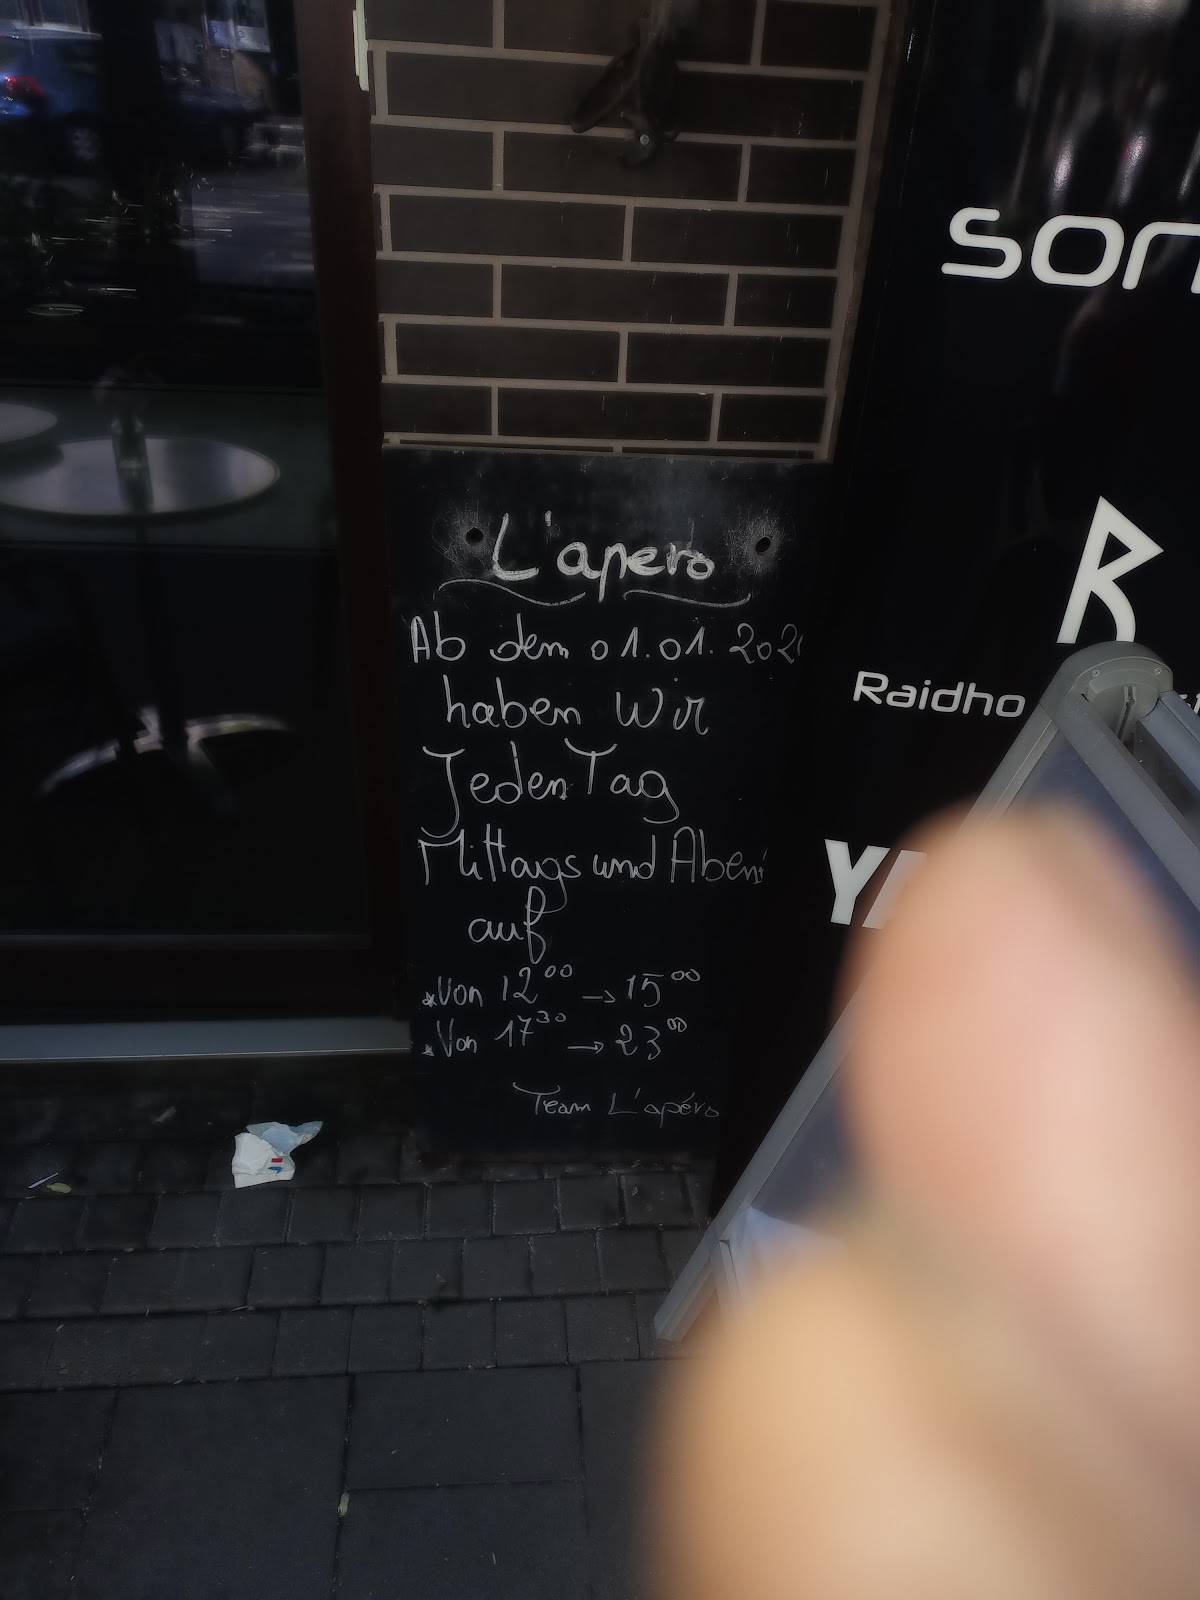 L'apero
Ab dem 01.01.202
haben Wir
Jeden Tag
Mittags und Abend
auf
*Von 12⁰⁰ → 15⁰⁰
*Von 17³⁰ → 23⁰⁰
Team L'apéro
son
Raidho